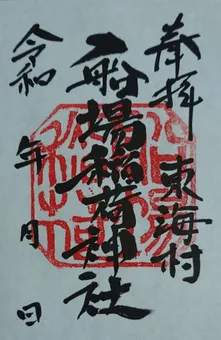 奉拝
東海村
船場稲荷神社
令和
年
月
日